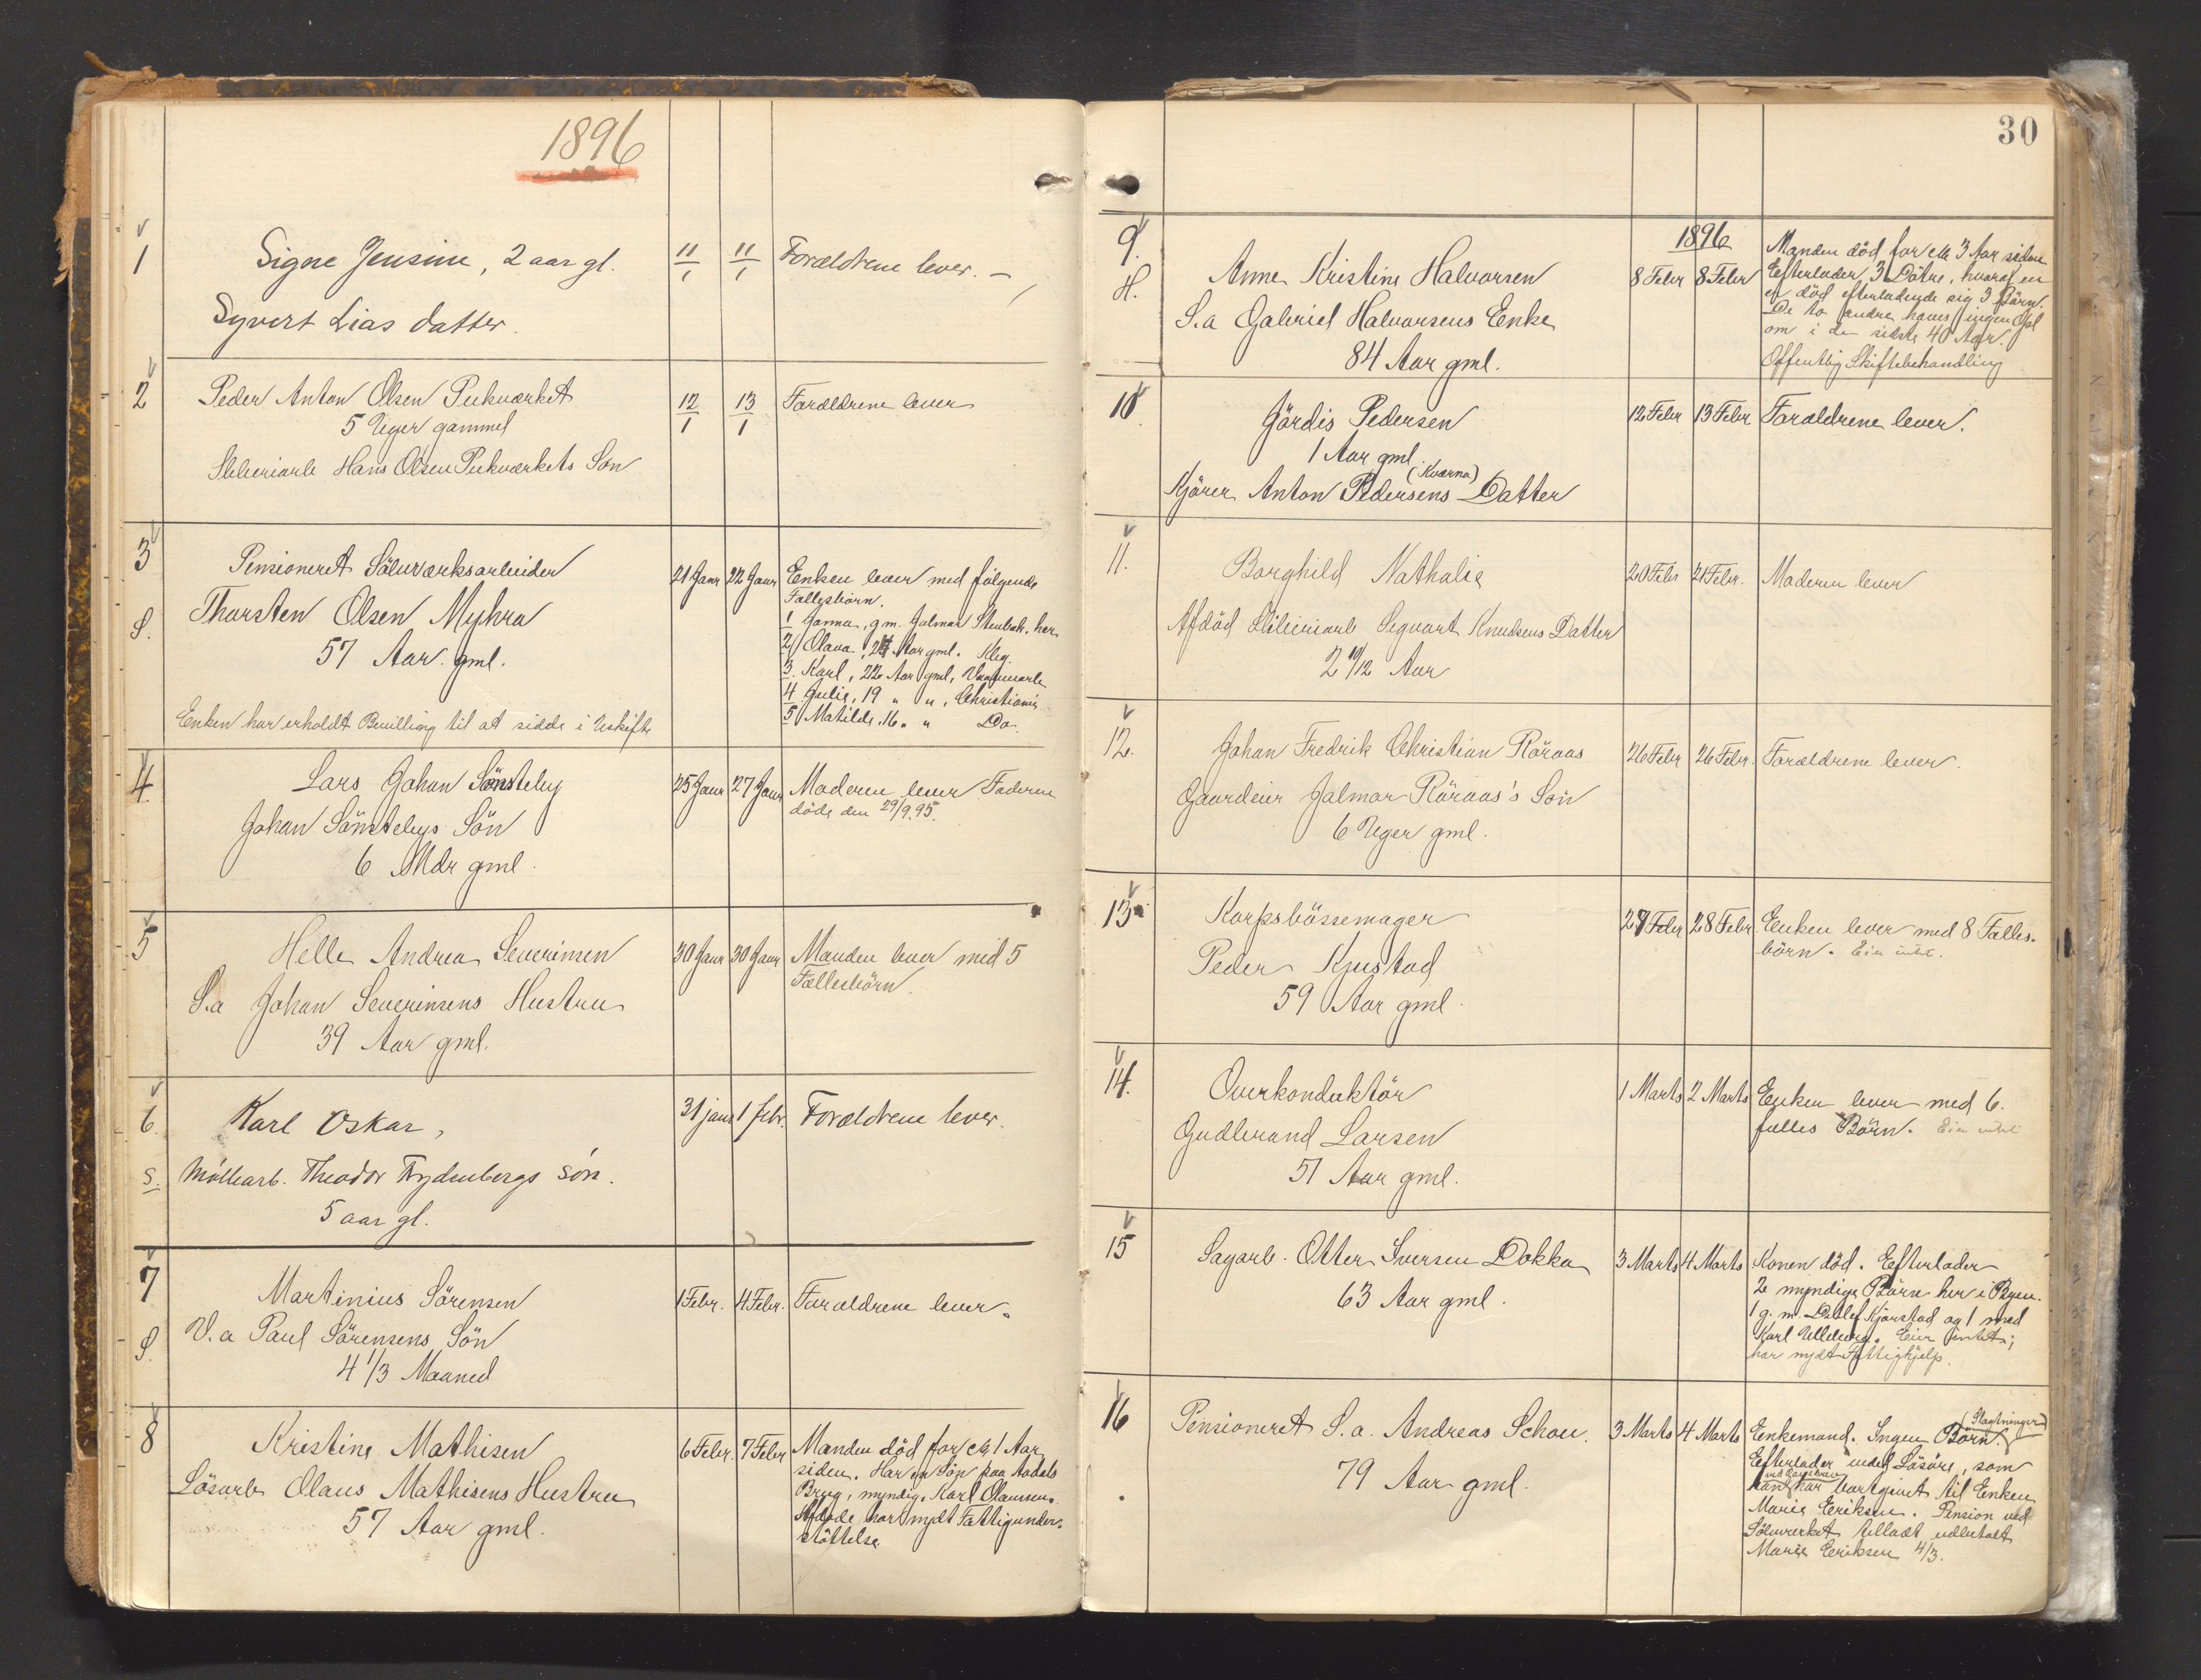 1896
1
Signe Jensine, 2 aar gl.
Syvert Lias datter.
11/1
11/1
Forældrene lever. –
2
Peder Anton Olsen Pukværket
5 Uger gammel
Hans Olsen Pukværkets Søn
12/1
13/1
Forældrene lever
3
S.
Pensioneret Sölvværksarbeider
Thorsten Olsen Myhra
57 Aar gml.
Enken har erholdt Bevilling til at sidde i Uskifte
21 Janr
22 Janr
Enken lever med følgende
Fællesbörn.
1 Janna, gm. Hjalmar Stenbak, her
2/ Olava, 24 Aar gml. Kbg.
3. Karl, 22 Aar gml,
4 Julie, 19 " ", Christiania
5 Matilde, 16 " " Do.
4
Lars Johan Sönsteby
Johan Sönstebys Sön
6 Mdr gml.
25 Janr
27 Janr
Moderen lever Faderen
döde den 29/9.95.
5
Helle Andrea Severinsen
S.a Johan Severinsens Hustru
39 Aar gml.
30 Janr
30 Janr
Manden lever med 5
Fællesbörn.
6.
S.
Karl Oskar,
Möllearb. Theodor Frydenbergs søn.
5 aar gl.
31 janr
1 febr.
Forældrene lever.
7
S.
Martinius Sörensen
V.a Paul Sörensens Sön
4 1/3 Maaned
1 Febr.
4 Febr.
Forældrene lever.
8
Kristine Mathisen
Lösarb Olaus Mathisens Hustru
57 Aar gml.
6 Febr.
7 Febr
Manden död for ca 1 Aar
siden. Har en Sön paa Aadals
Brug, myndig. Karl Olaussen.
Afdøde har nydt Fattigunder-
støttelse
30
9.
H.
Anne Kristine Halvorsen
S.a Gabriel Halvorsens Enke
84 Aar gml.
1896
8 Febr
8 Febr
Manden död for ca 3 Aar siden
Efterlader 3 Døtre, hvoraf en
er död efterladende sig 3 Börn.
De to andre haves ingen Opl
om i de sidste 40 Aar.
Offentlig Skiftebehandling
10
Hjördis Pedersen
1 Aar gml.
(Kværna)
Kjörer Anton Pedersens Datter
12 Febr
13 Febr
Forældrene lever.
11.
Borghild Nathalie
Afdöd Sliberiarb Segvart Knudsens Datter
2 10/12 Aar
20 Febr
21 Febr.
Moderen lever
12.
Johan Fredrik Christian Röraas
Gaardeier Hjalmar Röraas's Sön
6 Uger gml.
26 Febr
26 Febr.
Forældrene lever.
13
Korpsbössemager
Peder Kjustad
59 Aar gml.
27 Febr
28 Febr
Enken lever med 8 Fælles-
börn. Eier intet.
14.
Overkonduktör
Gudbrand Larsen
51 Aar gml.
1 Marts
2 Marts
Enken lever med 6.
fælles Börn. Eier intet
15
Sagarb. Otter Iversen Dokka
63 Aar gml.
3 Marts
4 Marts
Konen död. Efterlader
2 myndige Börn her i Byen.
1 g. m. Detlef Kjørstad og 1 med
Karl Ulleberg. Eier intet;
har nydt Fattighjelp.
16
Pensioneret S.a. Andreas Schou.
79 Aar gml.
3 Marts
4 Marts
Enkemand. Ingen Börn.
(Slægtninger)
Efterlader endel Lösöre, som
ved Gavebrev
han har bortgivet til Enken
Marie Eriksen. Pension ved
Sölvverket tilladt udbetalt
Marie Eriksen 4/3.